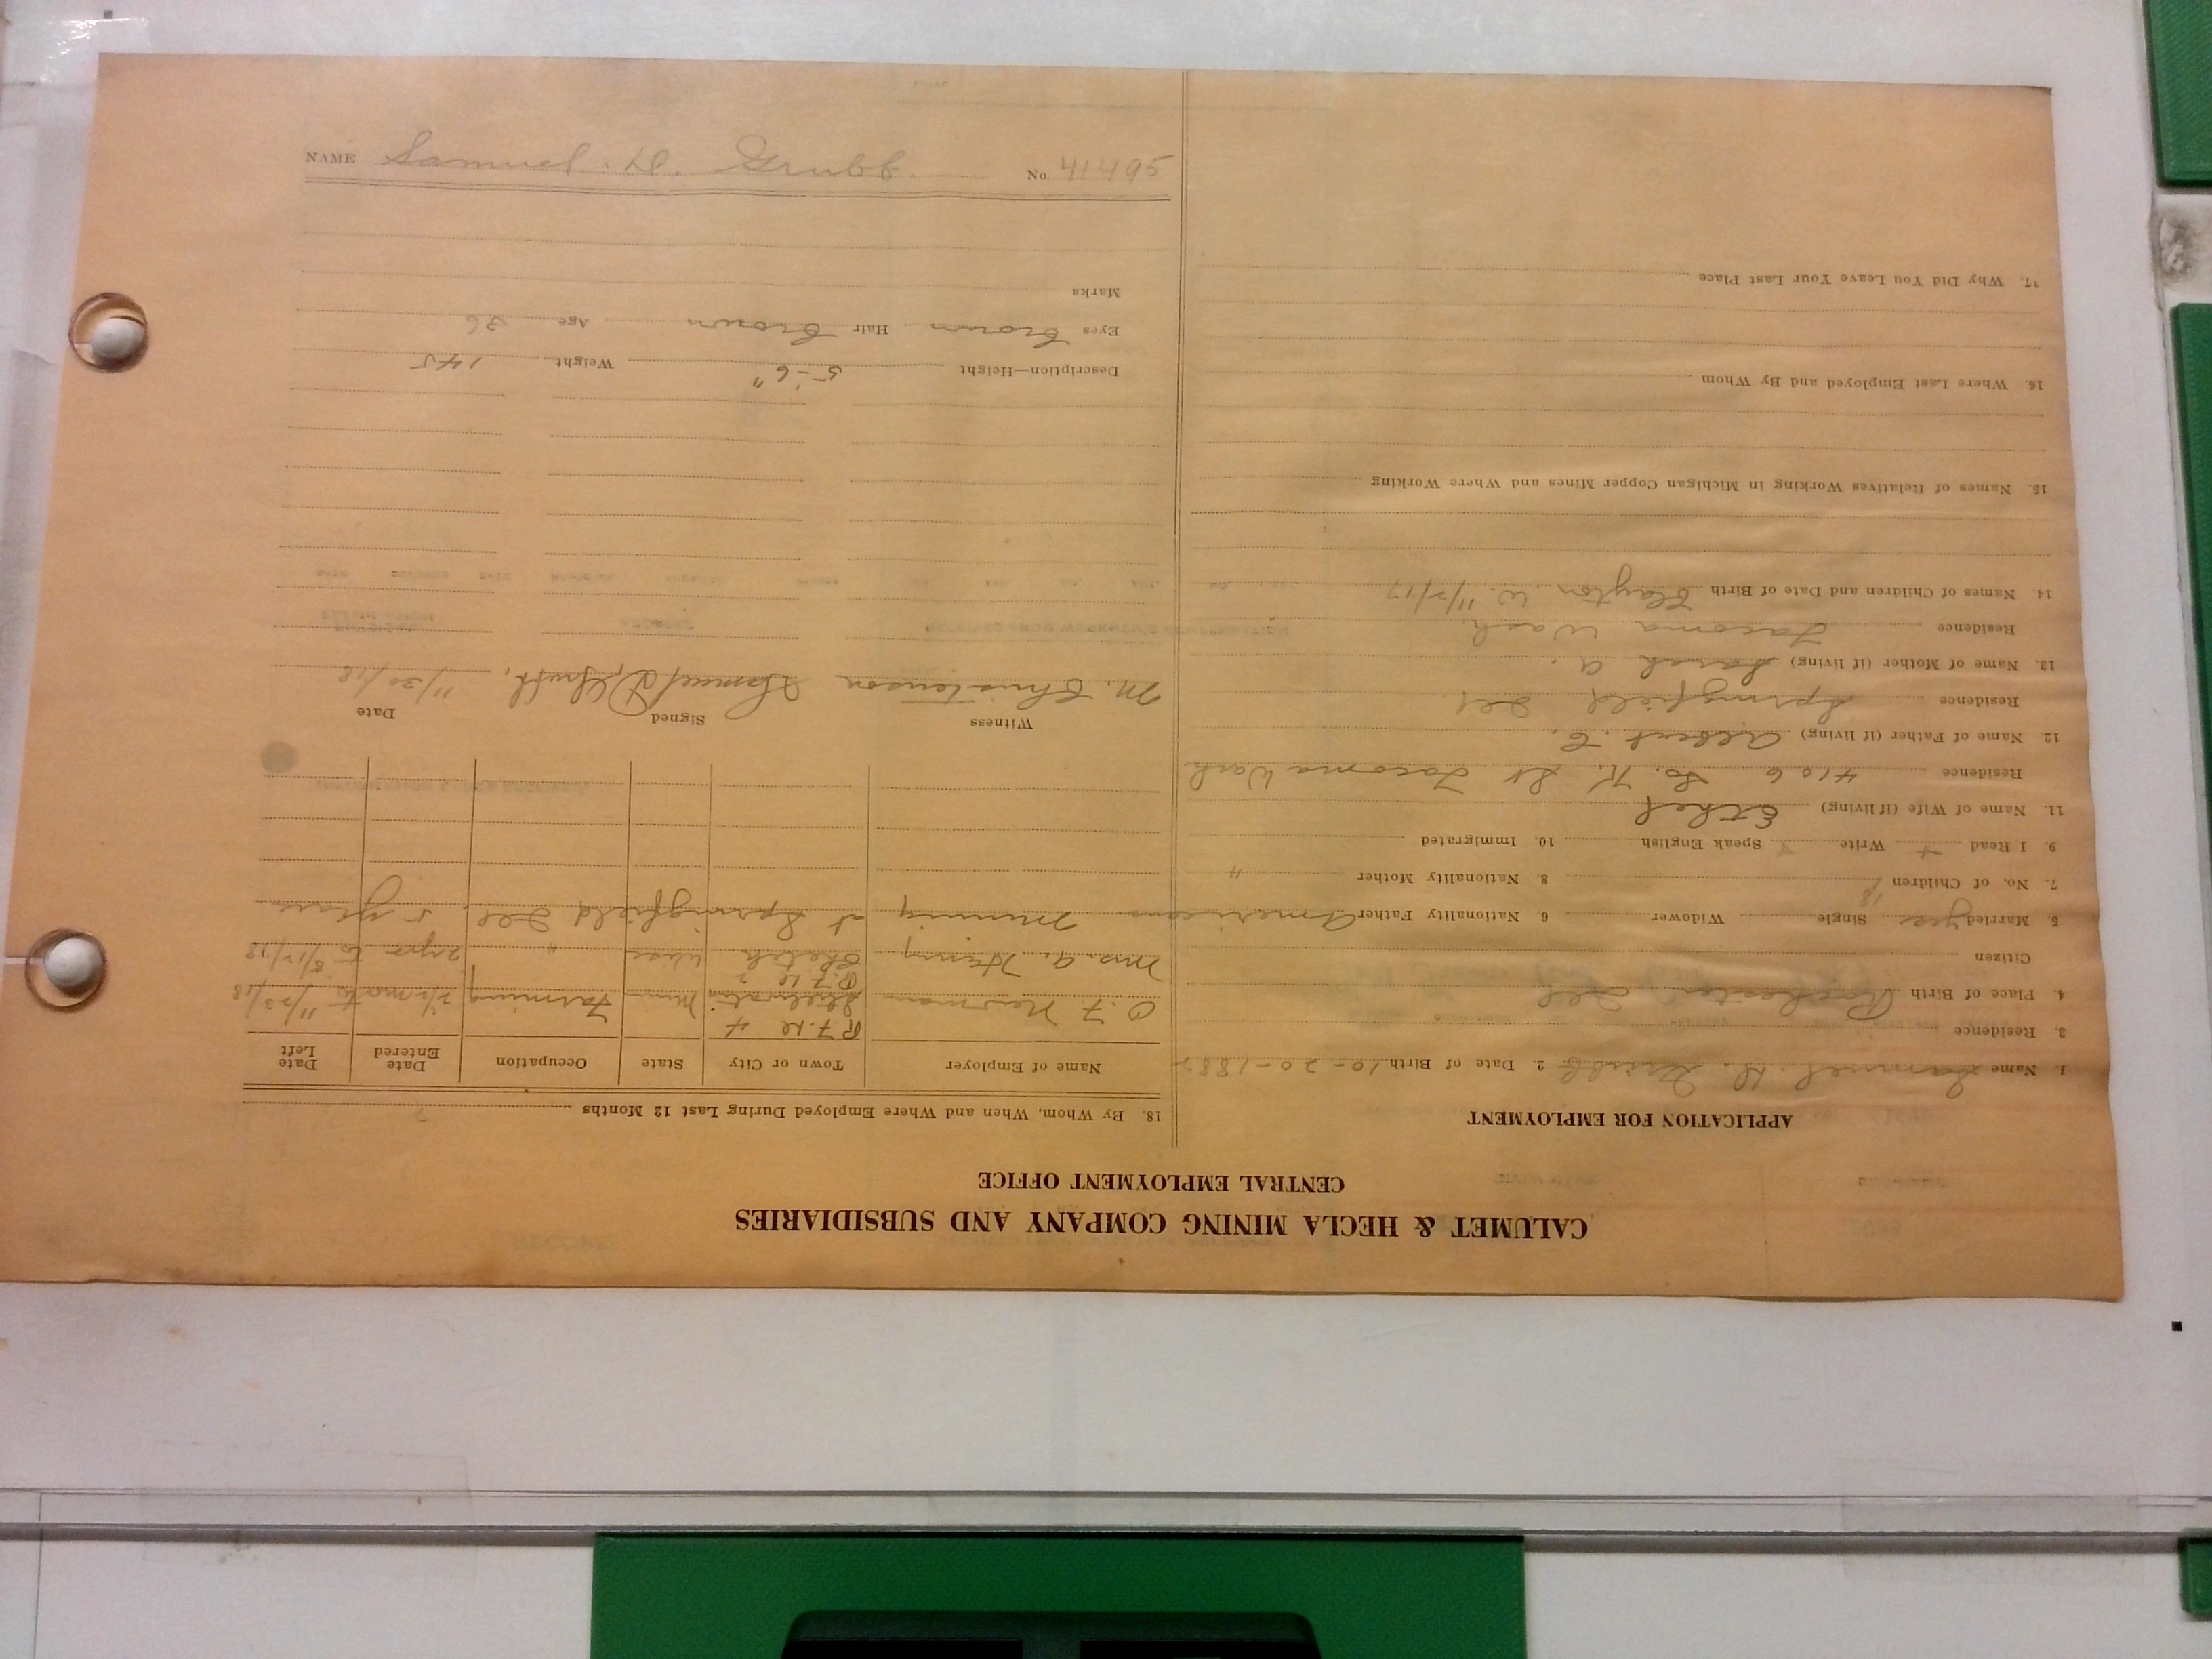 CALUMET & HECLA MINING COMPANY AND SUBSIDIARIES
CENTRAL EMPLOYMENT OFFICE
APPLICATION FOR EMPLOYMENT
1. Name Samuel. D. Grubb 2. Date of Birth 10-20-1882
3. Residence
4. Place of Birth Rochester Ill
Citizen
5. Married yes Single Widower 6. Nationality Father American
7. No. of Children 1 8. Nationality Mother "
9. I Read Write Speak English 10. Immigrated
11. Name of Wife (if living) Ethel
Residence 4106 So. K. St Tacoma Wash
12. Name of Father (if living) Albert. E.
Residence Springfield Ill.
13. Name of Mother (if living) Sarah A.
Residence Tacoma Wash.
14. Names of Children and Date of Birth Clayton W. 11/2/17
15. Names of Relatives Working in Michigan Copper Mines and Where Working
16. Where Last Employed and By Whom
17. Why Did You Leave Your Last Place
18. By Whom, When and Where Employed During Last 12 Months
Name of Employer Town or City State Occupation Date Entered Date Left
O. F. Newman R F. D 4 Minn Farming 2 1/2 mo to 11/23/18
Mrs. A. R. F. D 2 Wis " 2 yrs to 8/17/18
Mining at Springfield Ill 5 years
Witness Signed Date
M. Christenson Samuel D. Grubb. 11/30/18
Description—Height 5'-6" Weight 145
Eyes Brown Hair Brown Age 36
Marks
NAME Samuel. D. Grubb No. 41495